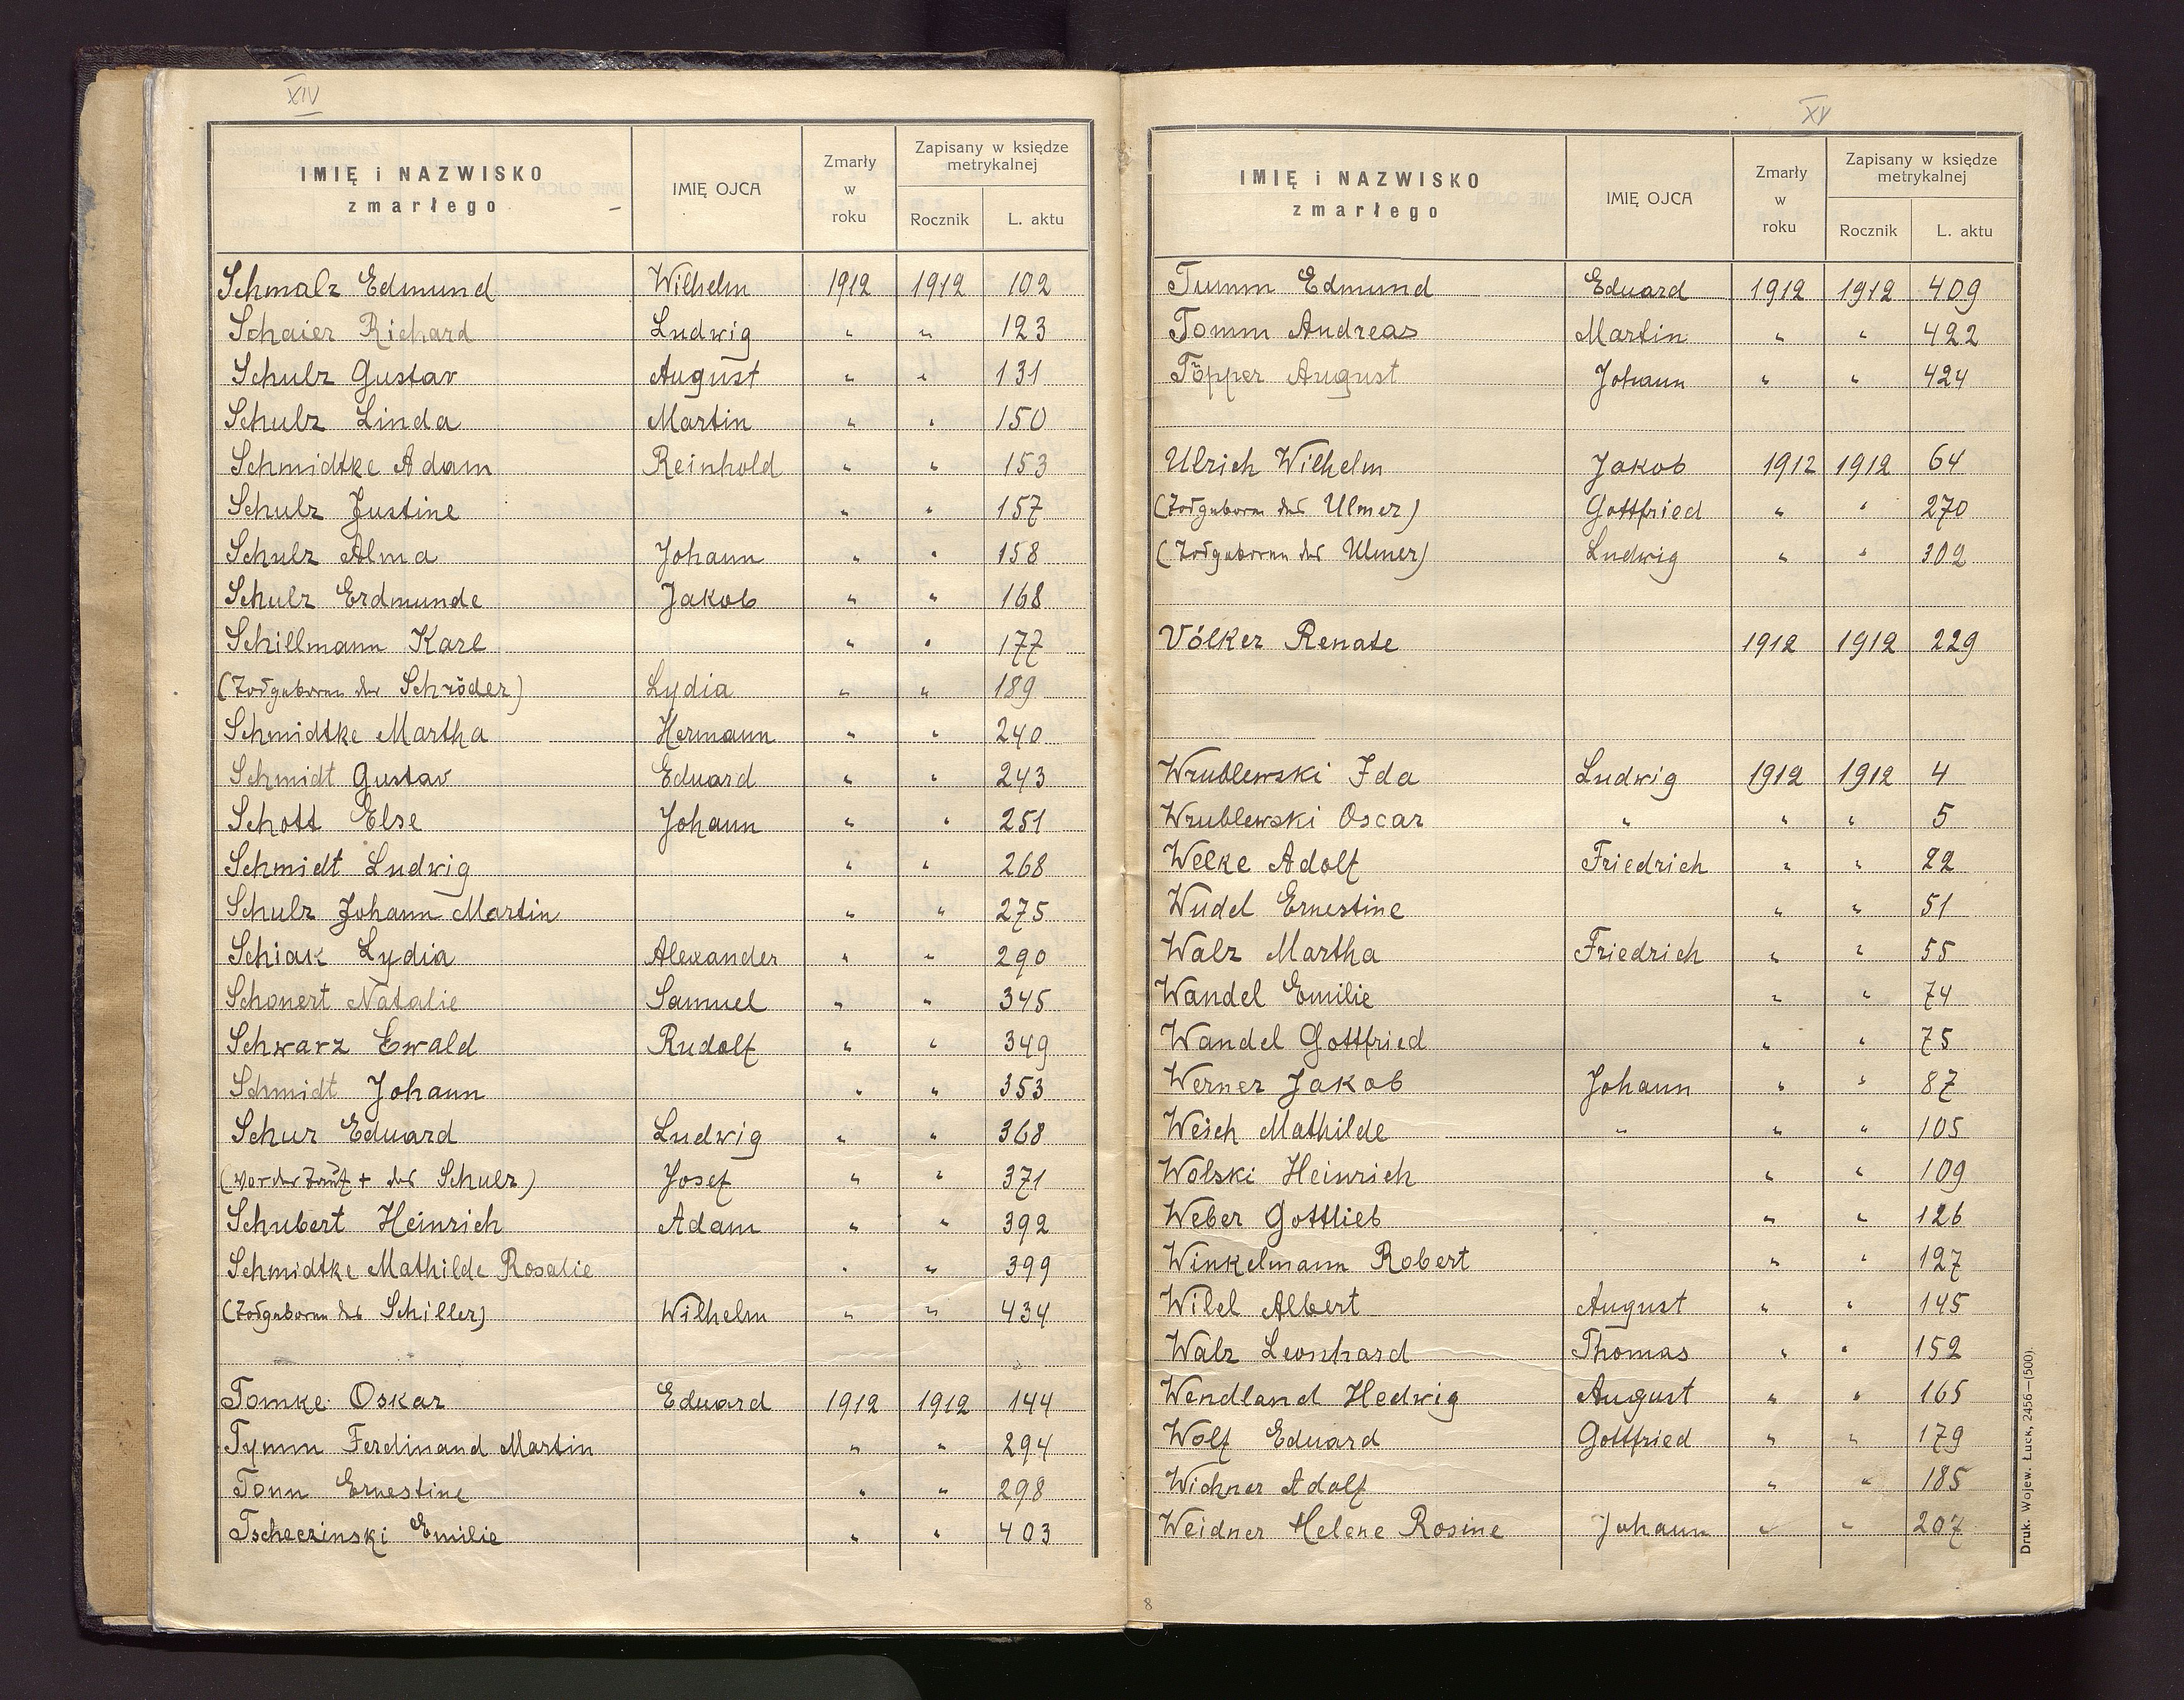 XIV
IMIĘ i NAZWISKO zmarłego IMIĘ OJCA Zmarły w roku Zapisany w księdze metrykalnej Rocznik L. aktu
Schmalz Edmund Wilhelm 1912 1912 102
Schaier Richard Ludwig " " 123
Schulz Gustav August " " 131
Schulz Linda Martin " " 150
Schmidtke Adam Reinhold " " 153
Schulz Justine " " 157
Schulz Alma Johann " " 158
Schulz Erdmunde Jakob " " 168
Schillmann Karl " " 177
(Todgeboren der Schröder) Lydia " " 189
Schmidtke Martha Hermann " " 240
Schmidt Gustav Eduard " " 243
Schott Else Johann " " 251
Schmidt Ludwig " " 268
Schulz Johann Martin " " 275
Schiak Lydia Alexander " " 290
Schonert Natalie Samuel " " 345
Schwarz Ewald Rudolf " " 349
Schmidt Johann " " 353
Schur Eduard Ludwig " " 368
(vor der Taufe + des Schulz) Josef " " 371
Schubert Heinrich Adam " " 392
Schmidtke Mathilde Rosalie " " 399
(Todgeboren des Schiller) Wilhelm " " 434
Tomke Oskar Eduard 1912 1912 144
Tymm Ferdinand Martin " " 294
Tonn Ernestine " " 298
Tscheczinski Emilie " " 403
XV
IMIĘ i NAZWISKO zmarłego IMIĘ OJCA Zmarły w roku Zapisany w księdze metrykalnej Rocznik L. aktu
Tumm Edmund Eduard 1912 1912 409
Tomm Andreas Martin " " 422
Töpper August Johann " " 424
Ulrich Wilhelm Jakob 1912 1912 64
(Todgeboren des Ulmer) Gottfried " " 270
(Todgeboren des Ulmer) Ludwig " " 302
Völker Renate 1912 1912 229
Wrublewski Ida Ludwig 1912 1912 4
Wrublewski Oscar " " " 5
Welke Adolf Friedrich " " 22
Wudel Ernestine " " 51
Walz Martha Friedrich " " 55
Wandel Emilie " " 74
Wandel Gottfried " " 75
Werner Jakob Johann " " 87
Weich Mathilde " " " 105
Wolski Heinrich " " 109
Weber Gottlieb " " 126
Winkelmann Robert " " 127
Wilel Albert August " " 145
Walz Leonhard Thomas " " 152
Wendland Hedwig August " " 165
Wolf Eduard Gottfried " " 179
Wichner Adolf " " 185
Weidner Helene Rosine Johann " " 207
Druk. Wojew. Łuck, 2456—(500).
8